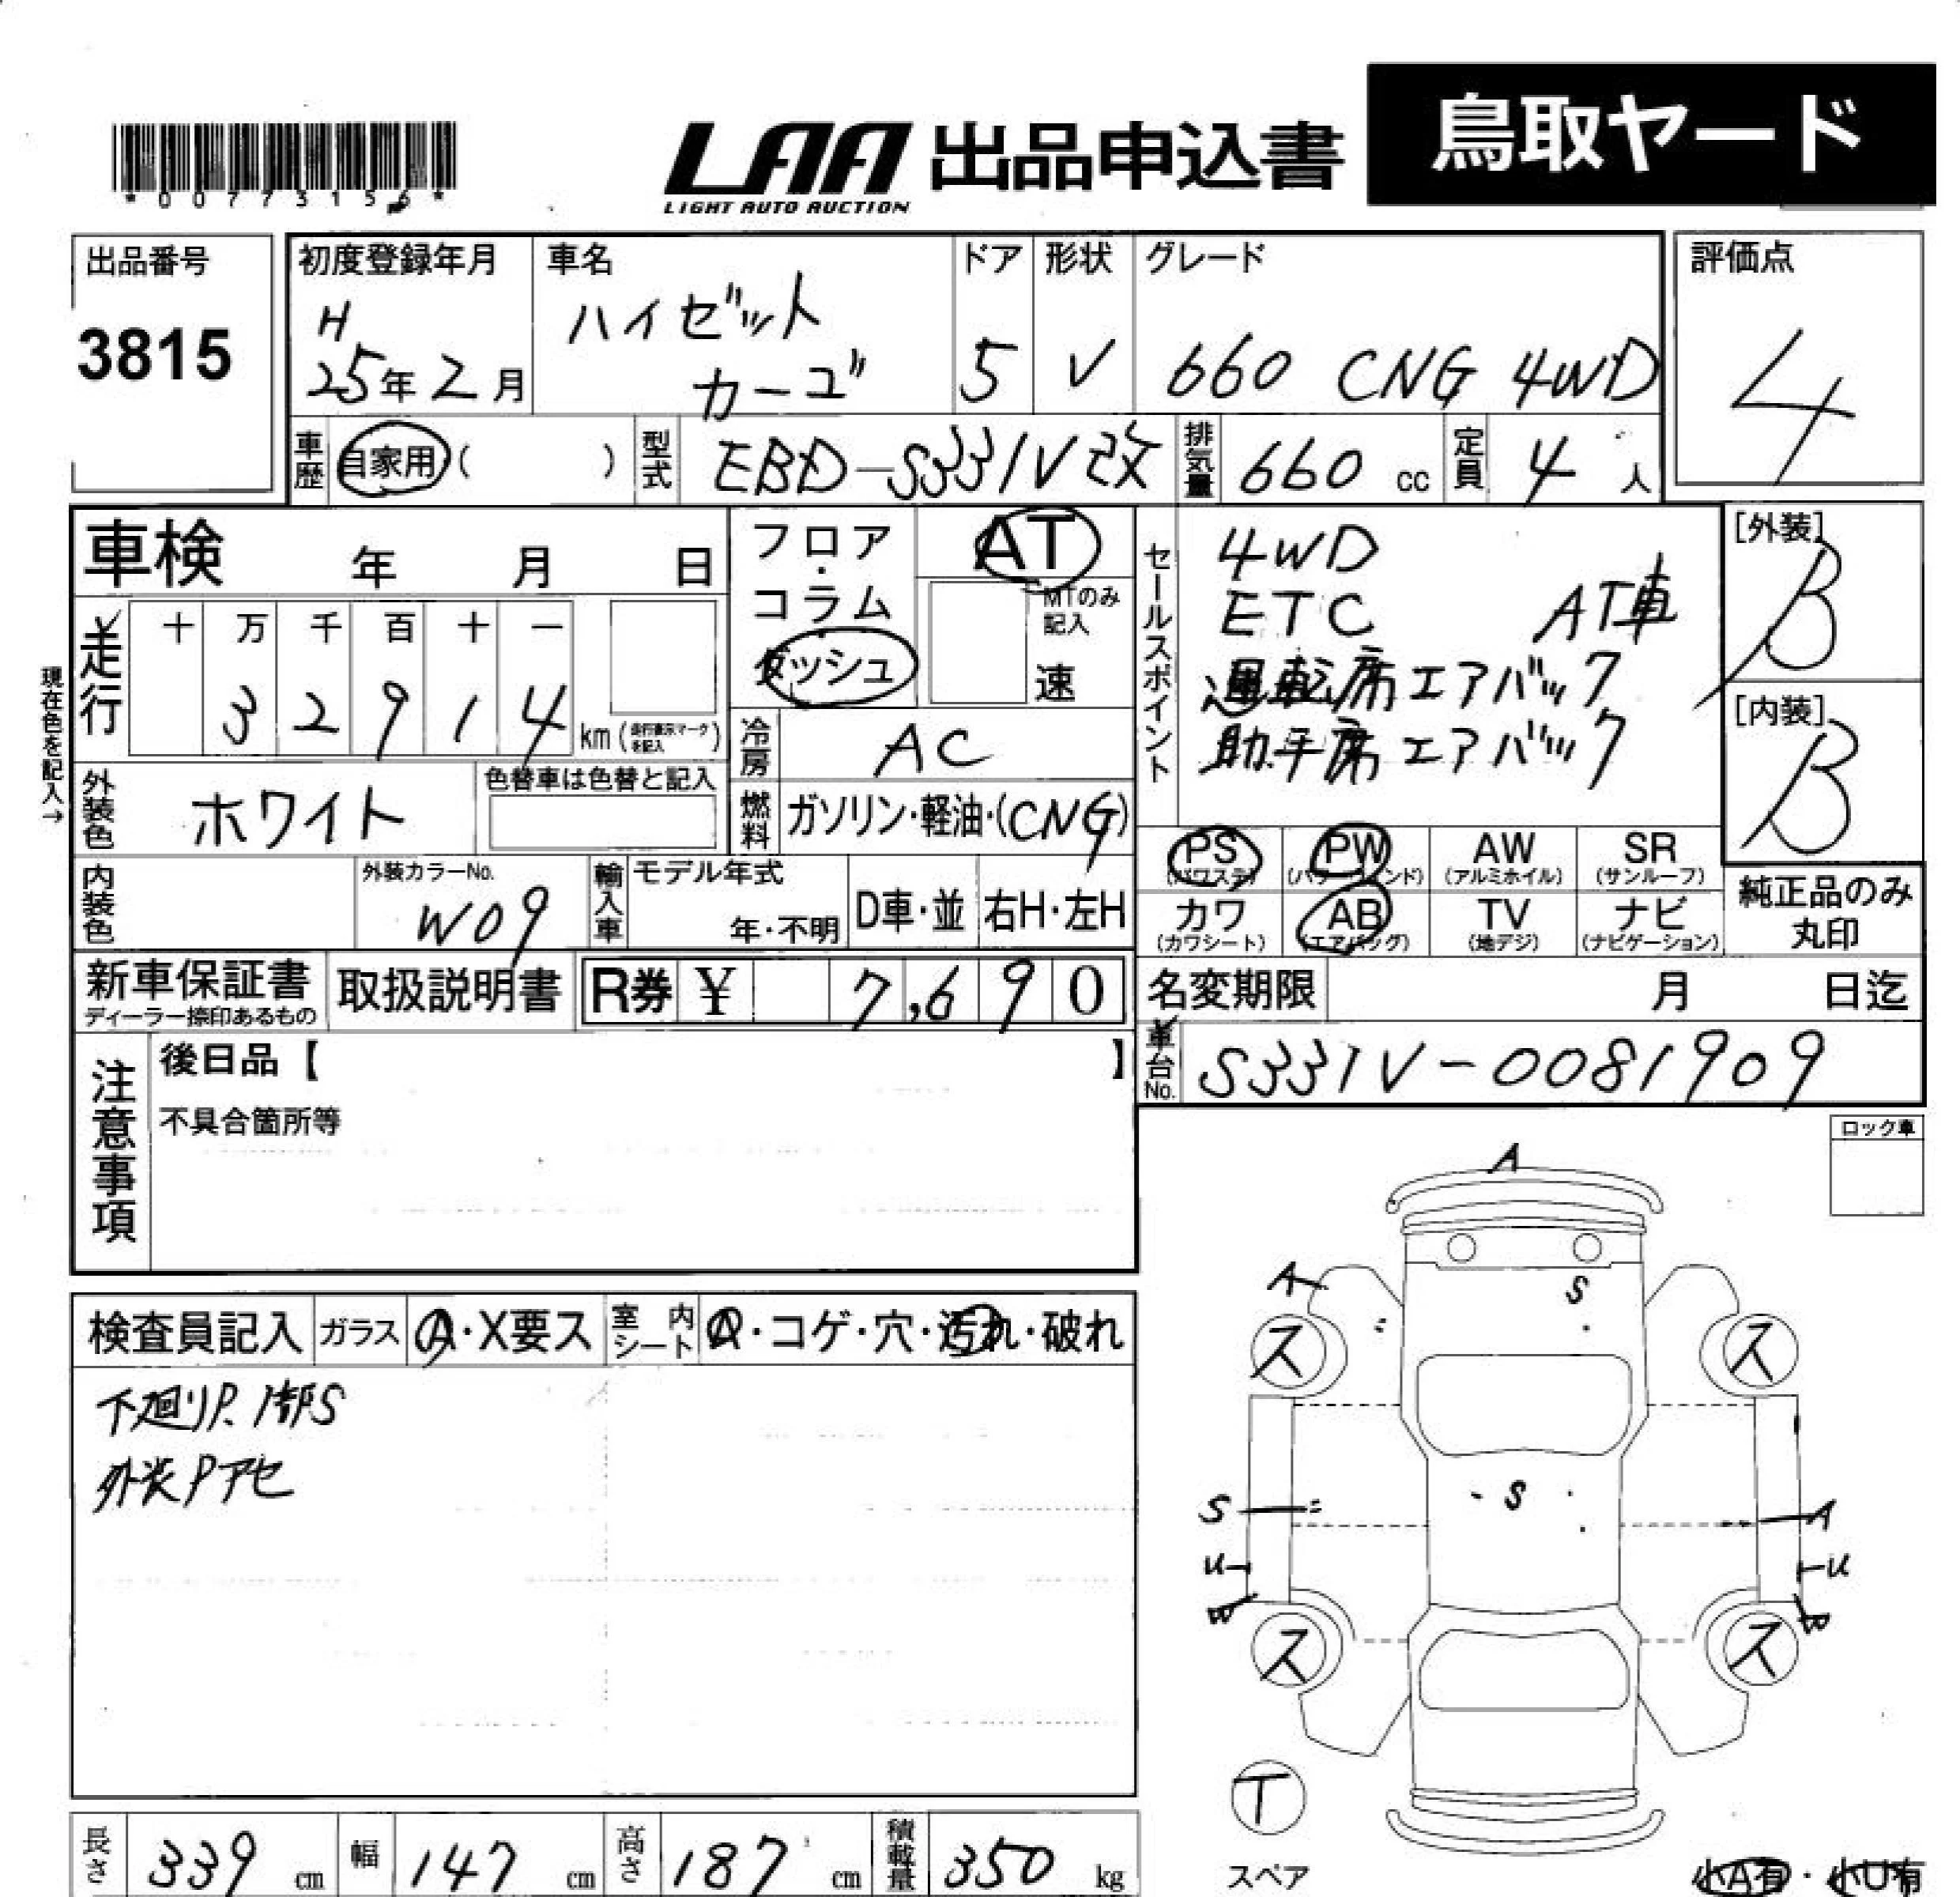 *00773156*
LAA 出品申込書 鳥取ヤード
LIGHT AUTO AUCTION
出品番号
3815
初度登録年月
H
25年2月
車名
ハイゼット
カーゴ
ドア
5
形状
V
グレード
660 CNG 4WD
評価点
4
車歴 自家用( )
型式 EBD-S331V改
排気量 660 cc
定員 4 人
車検 年 月 日
走行 十 万 千 百 十 一
3 2 9 1 4 km(走行表示マークを記入)
現在色を記入→
外装色 ホワイト
色替車は色替と記入
内装色
外装カラーNo.
W09
フロア・コラム
ダッシュ
AT
MTのみ記入
速
冷房 AC
燃料 ガソリン・軽油・(CNG)
輸入車 モデル年式
年・不明 D車・並 右H・左H
セールスポイント
4WD
ETC AT車
運転席エアバック
助手席エアバック
[外装]
B
[内装]
B
PS (パワステ) PW (パワーウィンド) AW (アルミホイル) SR (サンルーフ)
カワ (カワシート) AB (エアバッグ) TV (地デジ) ナビ (ナビゲーション)
純正品のみ
丸印
新車保証書
ディーラー捺印あるもの
取扱説明書
R券 ¥ 7,690
名変期限 月 日迄
車台No. S331V-0081909
注意事項
後日品【 】
不具合箇所等
ロック車
検査員記入 ガラス A・X要ス 室内シート A・コゲ・穴・汚れ・破れ
下廻りP.1部S
外装Pアセ
A
A
S
ス ス
S
S A
U U
W W
ス ス
T
スペア
小A有・小U有
長さ 339 cm
幅 147 cm
高さ 187 cm
積載量 350 kg